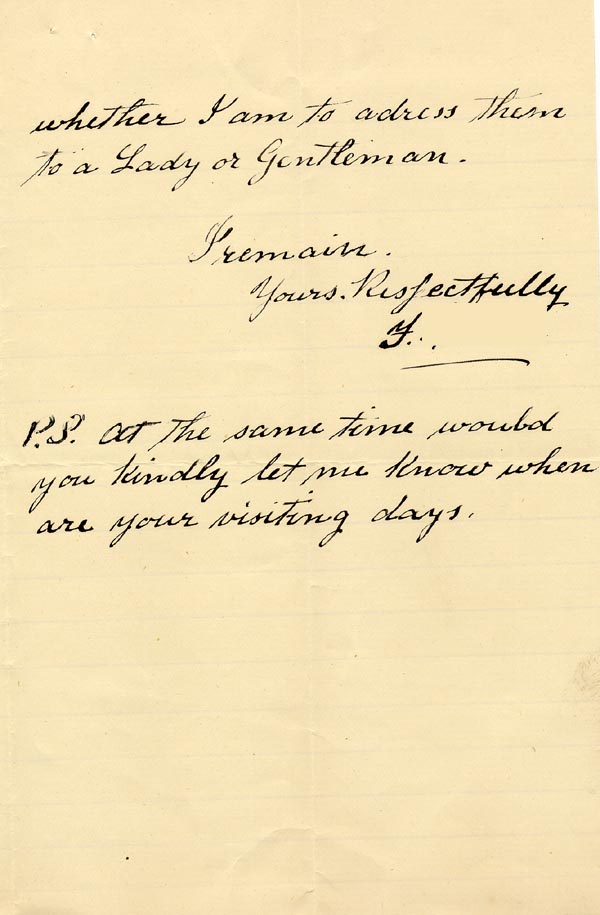 whether I am to adress them
to a Lady or Gentleman.
I remain.
Yours. Respectfully
F..
P.S. At the same time would
you kindly let me know when
are your visiting days.